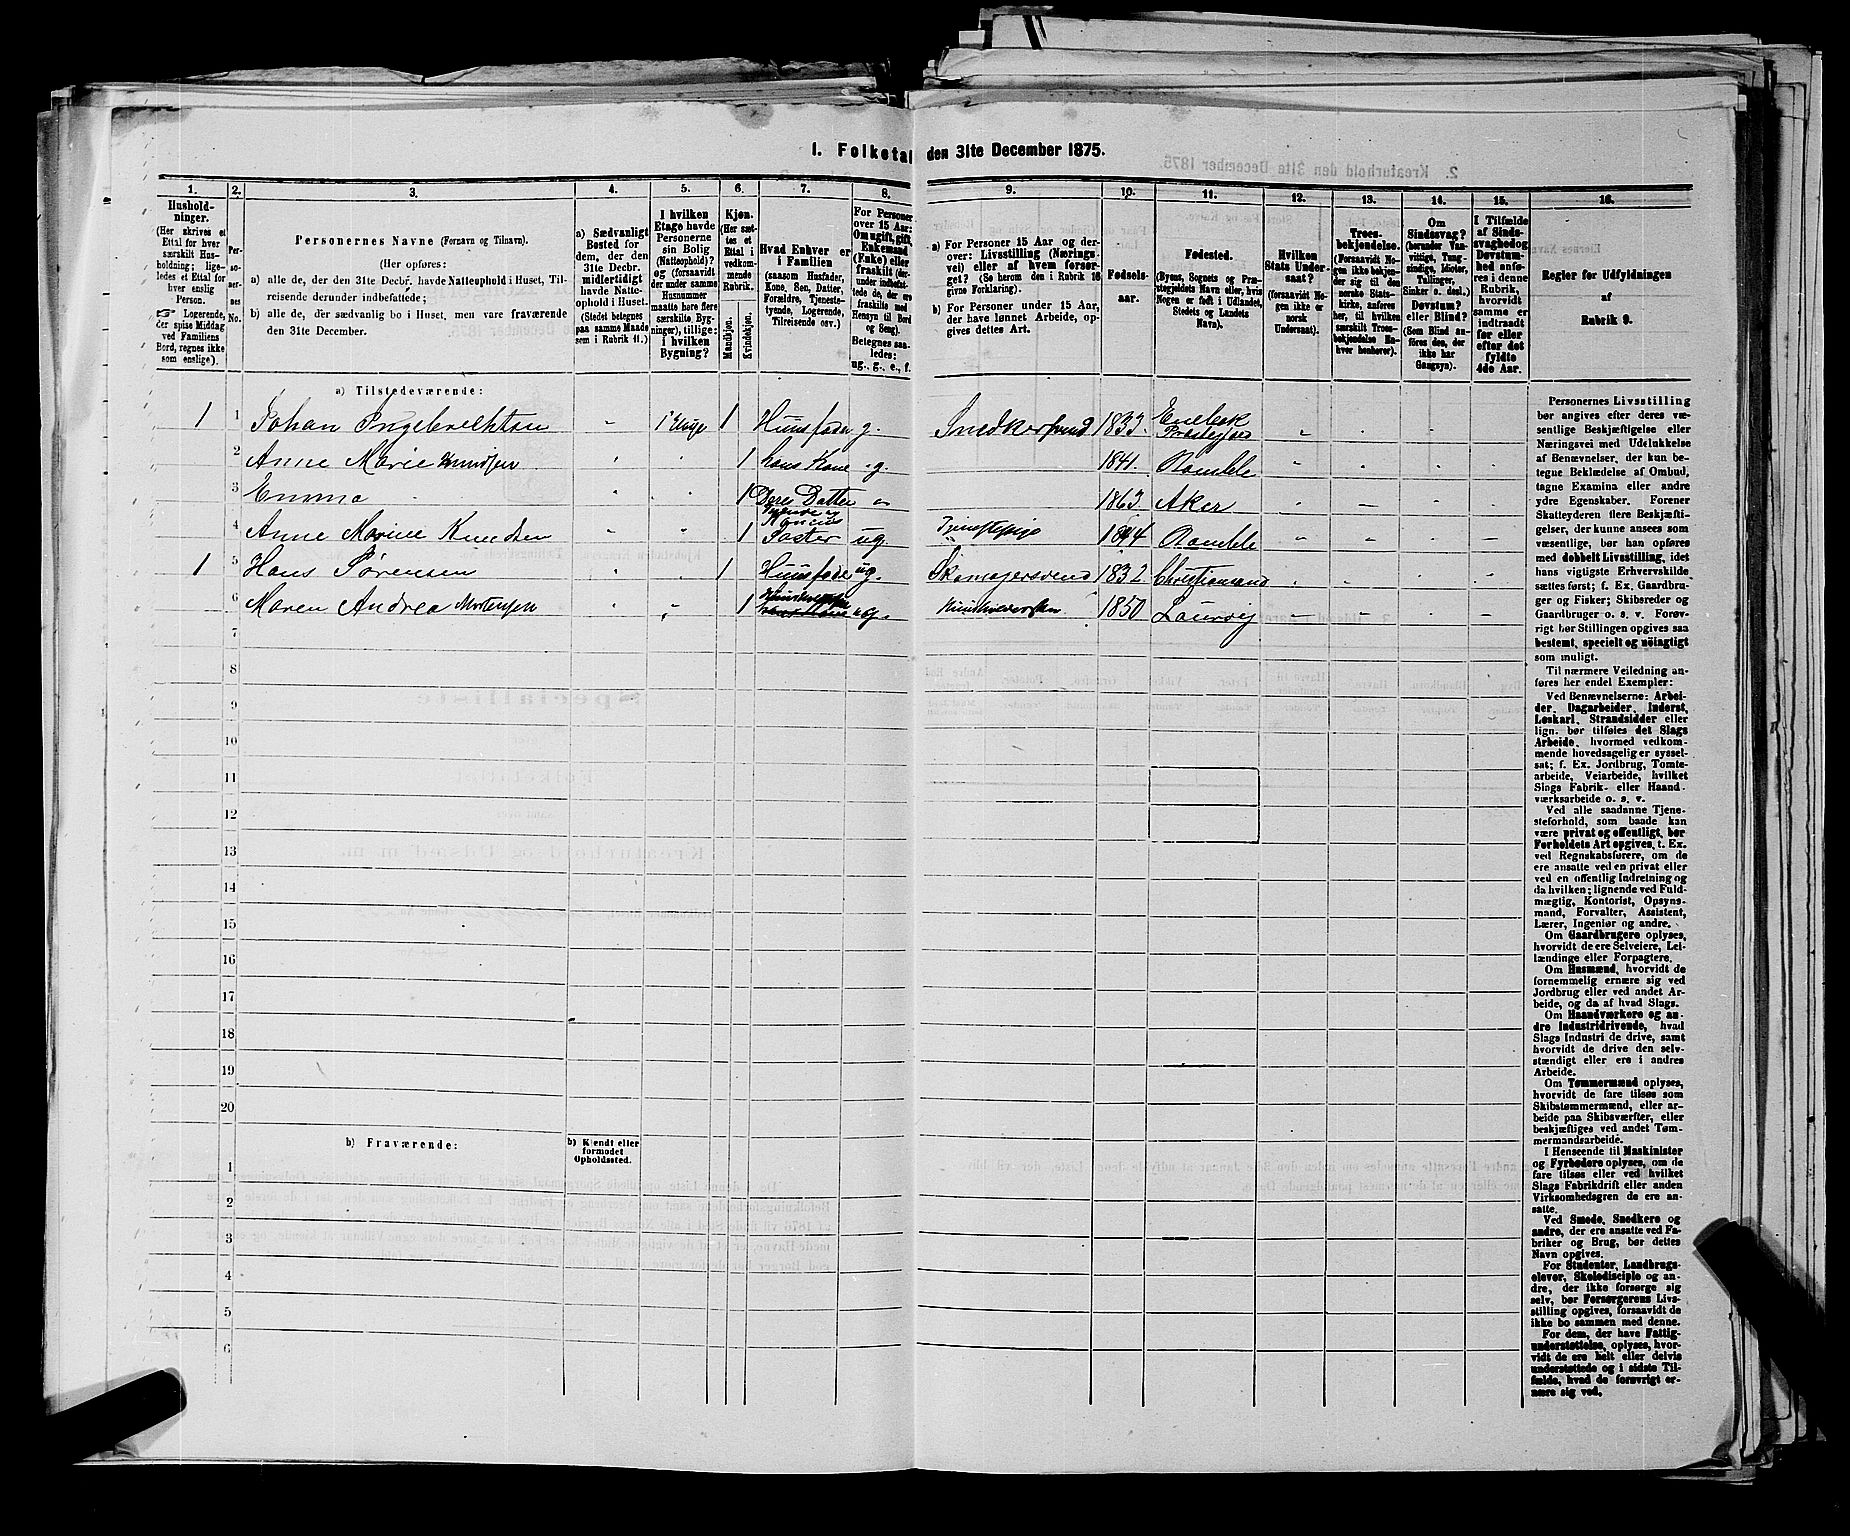 1. Folketal den 31te December 1875.
1. 2. 3. 4. 5. 6. 7. 8. 9. 10. 11. 12. 13. 14. 15. 16.
Hushold-
ninger.
(Her skrives et
Ettal for hver
særskilt Hus-
holdning; lige-
ledes et Ettal for
hver enslig
Person.
☞ Logerende,
der spise Middag
ved Familiens
Bord, regnes ikke
som enslige).
Per-
so-
ner-
nes
No.
Personernes Navne (Fornavn og Tilnavn).
(Her opføres:
a) alle de, der den 31te Decbr. havde Natteophold i Huset, Til-
reisende derunder indbefattede;
b) alle de, der sædvanlig bo i Huset, men vare fraværende
den 31te December.
a) Sædvanligt
Bosted for
dem, der den
31te Decbr.
midlertidigt
havde Natte-
ophold i Huset.
(Stedet betegnes
paa samme Maade
som i Rubrik 11.)
I hvilken
Etage havde
Personerne
sin Bolig
(Natteophold)?
og (forsaavidt
der under samme
Husnummer
maatte høre flere
særskilte Byg-
ninger), tillige:
i hvilken
Bygning?
Kjøn.
(Her sæt-
tes et
Ettal i
vedkom-
mende
Rubrik.
Mandkjøn.
Kvindekjøn.
Hvad Enhver er
i Familien
(saasom Husfader,
Kone, Søn, Datter,
Forældre, Tjeneste-
tyende, Logerende,
Tilreisende osv.)
For Personer
over 15 Aar:
Om ugift, gift,
Enkemand
(Enke) eller
fraskilt (der-
under indbefat-
tede de, der ere
fraskilte med
Hensyn til Bord
og Seng).
Betegnes saa-
ledes:
ug., g., e., f.
a) For Personer 15 Aar og der-
over: Livsstilling (Nærings-
vei) eller af hvem forsør-
get? (Se herom den i Rubrik 16
givne Forklaring).
b) For Personer under 15 Aar,
der have lønnet Arbeide, op-
gives dettes Art.
Fødsels-
aar.
Fødested.
(Byens, Sognets og Præ-
stegjeldets Navn eller, hvis
Nogen er født i Udlandet,
Stedets og Landets
Navn).
Hvilken
Stats Under-
saat?
(forsaavidt No-
gen ikke er
norsk
Undersaat).
Troes-
bekjendelse.
(Forsaavidt No-
gen ikke bekjen-
der sig til den
norske Stats-
kirke, anføres
her, til hvilken
særskilt Troes-
bekjendelse En-
hver henhører).
Om
Sindssvag?
(herunder Van-
vittige, Tung-
sindige, Idioter,
Tullinger,
Sinker o. desl.)
Døvstum?
eller Blind?
(Som Blind an-
føres den, der
ikke har
Gangsyn).
I Tilfælde
af Sinds-
svaghed og
Døvstum-
hed anfø-
res i denne
Rubrik,
hvorvidt
samme er
indtraadt
før eller
efter det
fyldte
4de Aar.
Regler for Udfyldningen
af
Rubrik 9.
a) Tilstedeværende:
1 1 Johan Ingebrechtsen " 1ste Etage 1 Huusfader g. Snedkersvend 1833. Enebak Prestegjeld " " " "
2 Anne Marie Knudsen " " 1 hans Kone g. 1841. Bamble " " " "
3 Emma " " 1 Deres Datter " 1863. Aker " " " "
4 Anne Marine Knudsen " " 1 Tyende og Konens Søster ug. Tjenestepige 1844 Bamble " " " "
1 5 Hans Sørensen " " 1 Huusfader ug. Skomagersvend 1832 Christiansund " " " "
6 Maren Andrea Mortensen " " 1 ug. 1850 Laurvig " " " "
7
8
9
10
11
12
13
14
15
16
17
18
19
20
b) Fraværende:
b) Kjendt eller
formodet
Opholdssted.
1
2
3
4
5
6
Personernes Livsstilling
bør angives efter deres væ-
sentlige Beskjæftigelse eller
Næringsvei med Udelukkelse
af Benævnelser, der kun be-
tegne Beklædelse af Ombud,
tagne Examina eller andre
ydre Egenskaber. Forener
Skatteyderen flere Beskjæfti-
gelser, der kunne ansees som
væsentlige, bør han opføres
med dobbelt Livsstilling, idet
hans vigtigste Erhvervskilde
sættes først; f. Ex. Gaardbru-
ger og Fisker; Skibsreder og
Gaardbruger o. s. v. Forøv-
rigt bør Stillingen opgives saa
bestemt, specielt og nøiagtigt
som muligt.
Til nærmere Veiledning an-
føres her endel Exempler:
Ved Benævnelserne: Arbei-
der, Dagarbeider, Inderst,
Løskarl, Strandsidder eller
lign. bør tilføies det Slags
Arbeide, hvormed vedkom-
mende hovedsagelig er syssel-
sat; f. Ex. Jordbrug, Tomte-
arbeide, Veiarbeide, hvilket
Slags Fabrik- eller Haand-
værksarbeide o. s. v.
Ved alle saadanne Tjene-
steforhold, som baade kan
være privat og offentligt, bør
Forholdets Art opgives, t. Ex.
ved Regnskabsførere, om de
ere ansatte ved en privat eller
ved en offentlig Indretning og
da hvilken; lignende ved Fuld-
mægtig, Kontorist, Opsyns-
mand, Forvalter, Assistent,
Lærer, Ingeniør og andre.
Om Gaardbrugere oplyses,
hvorvidt de ere Selveiere, Lei-
lændinge eller Forpagtere.
Om Husmænd, hvorvidt de
fornemmelig ernære sig ved
Jordbrug eller ved andet Ar-
beide, og da af hvad Slags.
Om Haandværkere og an-
dre Industridrivende, hvad
Slags Industri de drive, samt
hvorvidt de drive den selv-
stændigt eller ere i andres
Arbeide.
Om Tømmermænd oplyses,
hvorvidt de fare tilsøs som
Skibstømmermænd, eller ar-
beide paa Skibsværfter, eller
beskjæftiges ved andet Tøm-
mermandsarbeide.
I Henseende til Maskinister
og Fyrbødere oplyses, om de
fare tilsøs eller ved hvilket
Slags Fabrikdrift eller anden
Virksomhedsgren de ere an-
satte.
Ved Smede, Snedkere og
andre, der ere ansatte ved Fa-
briker og Brug, bør dettes
Navn opgives.
For Studenter, Landbrugs-
elever, Skoledisciple og an-
dre, der ikke forsørge sig
selv, bør Forsørgerens Livs-
stilling opgives, forsaavidt de
ikke bo sammen med denne.
For dem, der have Fattig-
understøttelse, oplyses, hvor-
vidt de ere helt eller delvis
understøttede og i sidste Til-
fælde, hvad de forøvrigt er-
nære sig ved.